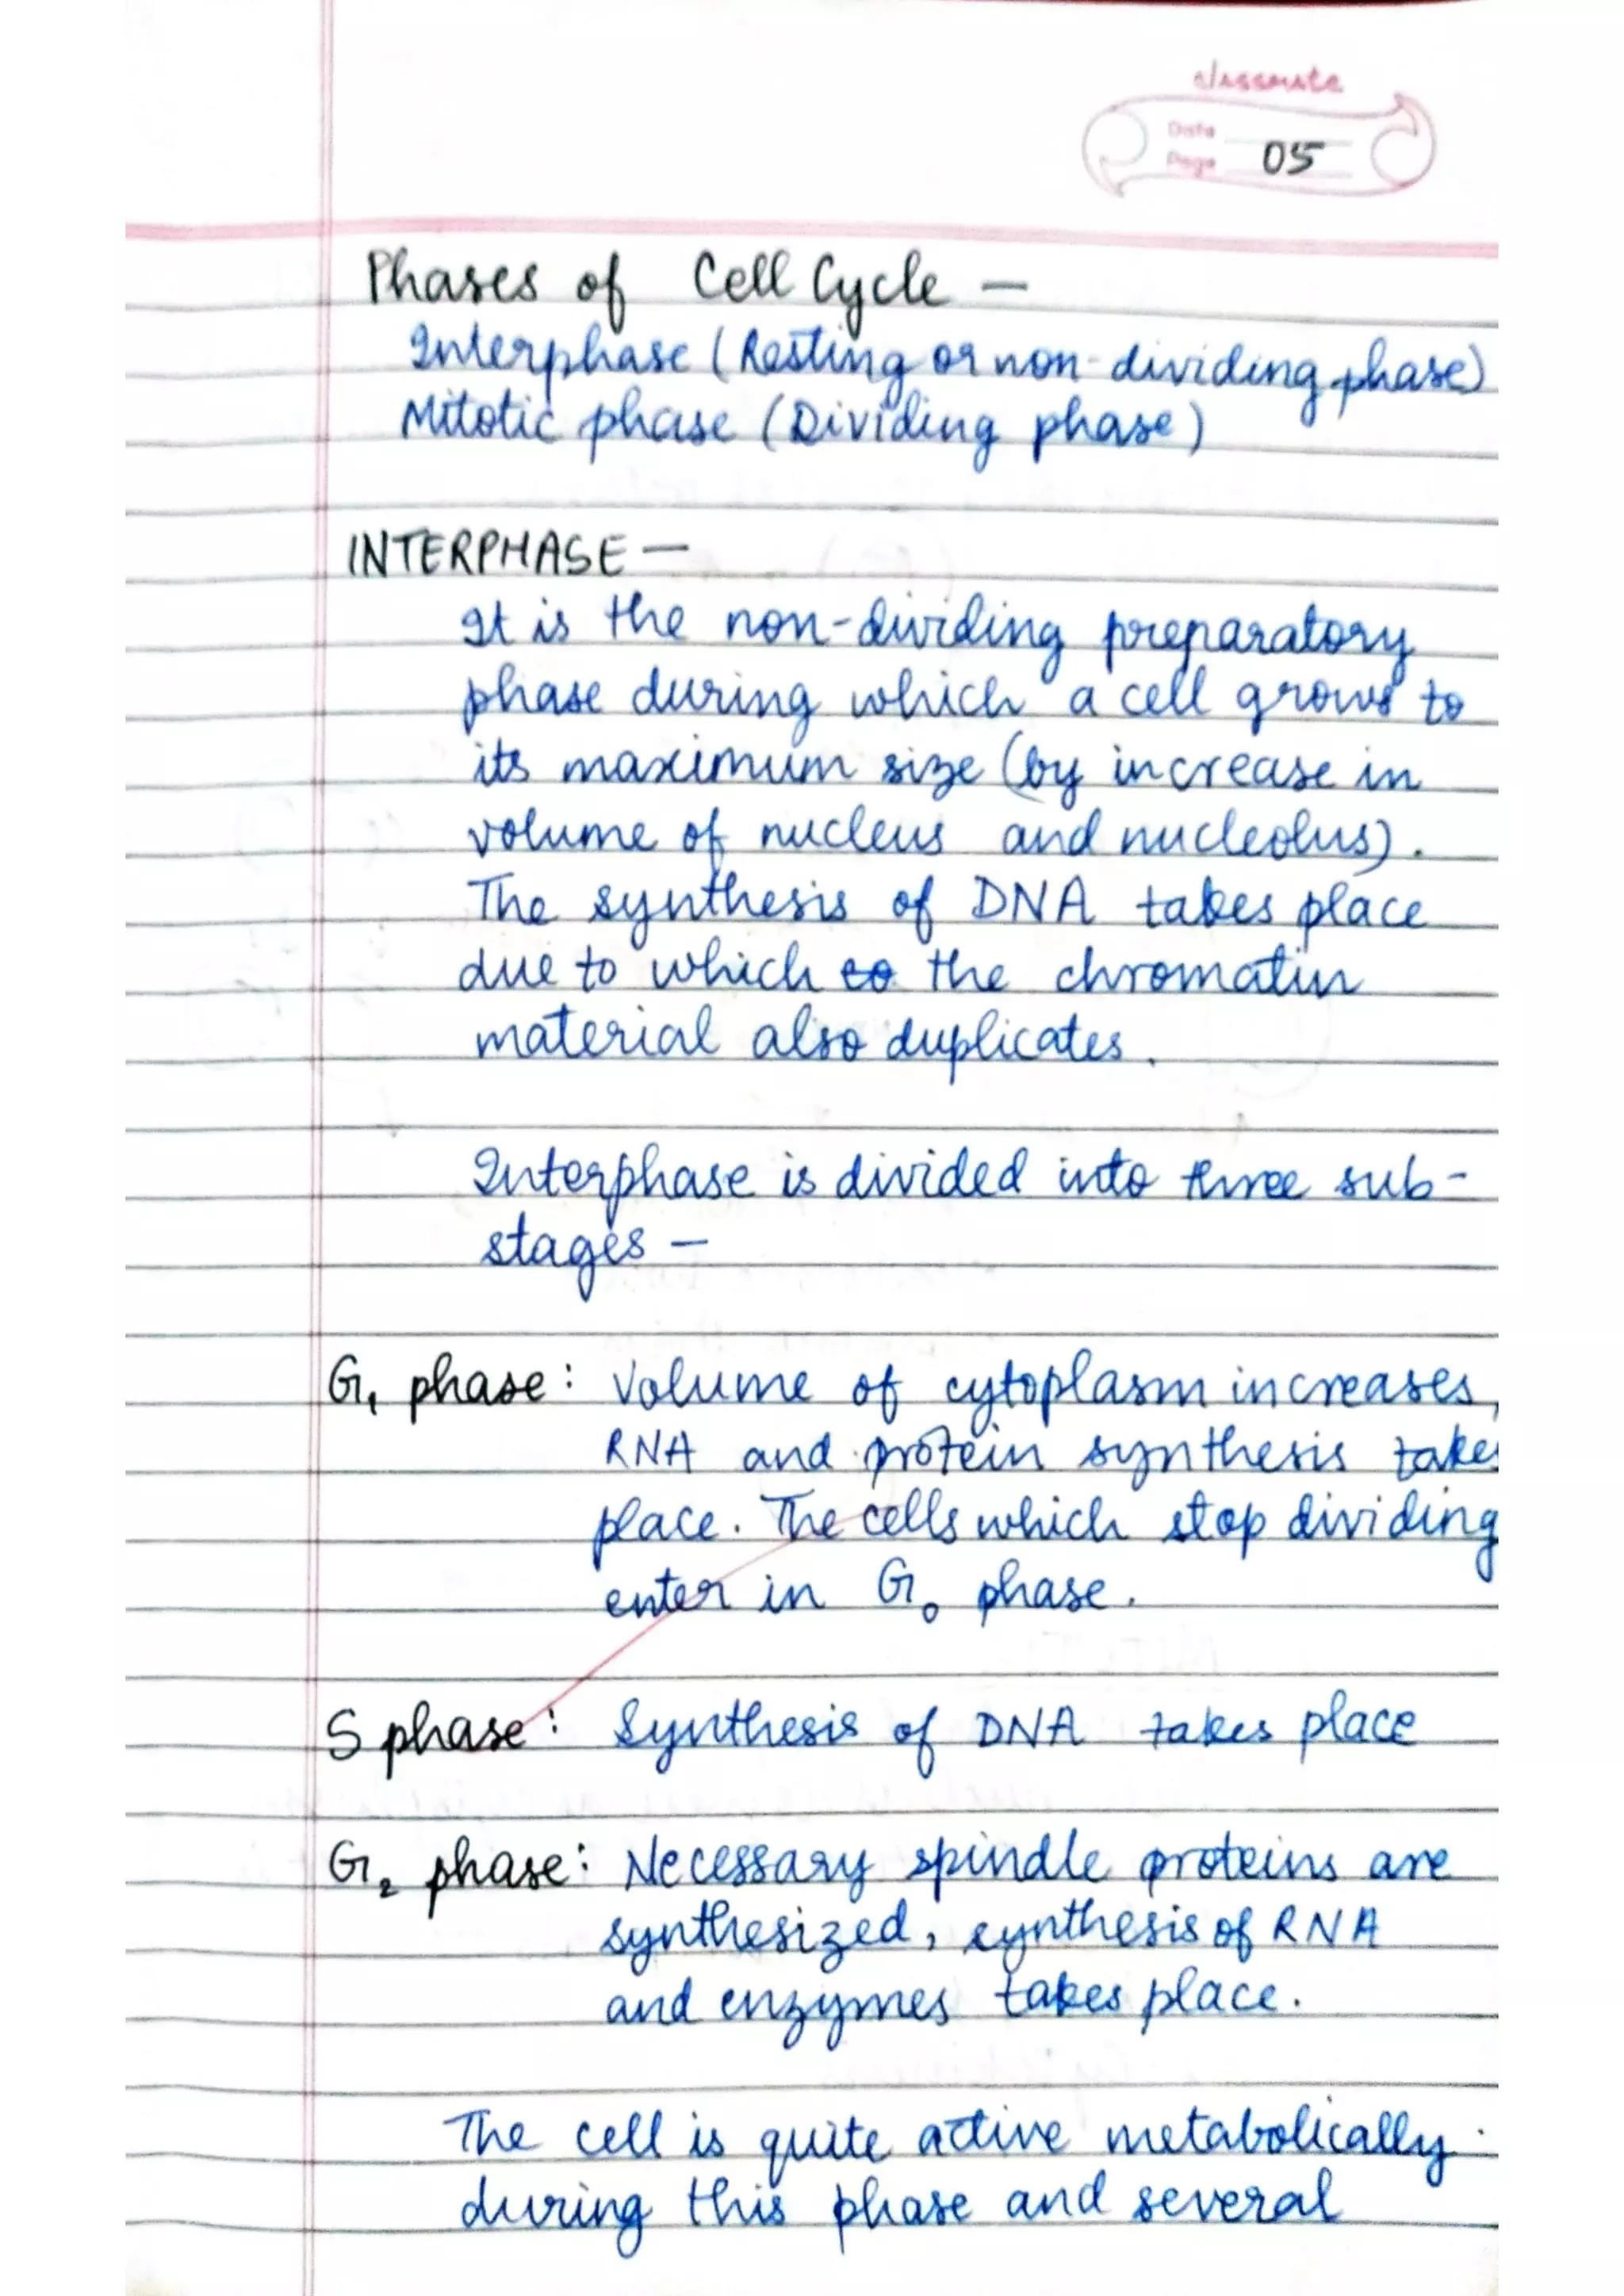 classmate
Date
Page 05
Phases of Cell Cycle —
Interphase (Resting or non-dividing phase)
Mitotic phase (Dividing phase)
INTERPHASE —
It is the non-dividing preparatory
phase during which a cell grows to
its maximum size (by increase in
volume of nucleus and nucleolus).
The synthesis of DNA takes place
due to which the chromatin
material also duplicates.
Interphase is divided into three sub-
stages —
G₁ phase: Volume of cytoplasm increases,
RNA and protein synthesis takes
place. The cells which stop dividing
enter in G₀ phase.
S phase: Synthesis of DNA takes place
G₂ phase: Necessary spindle proteins are
synthesized, synthesis of RNA
and enzymes takes place.
The cell is quite active metabolically
during this phase and several